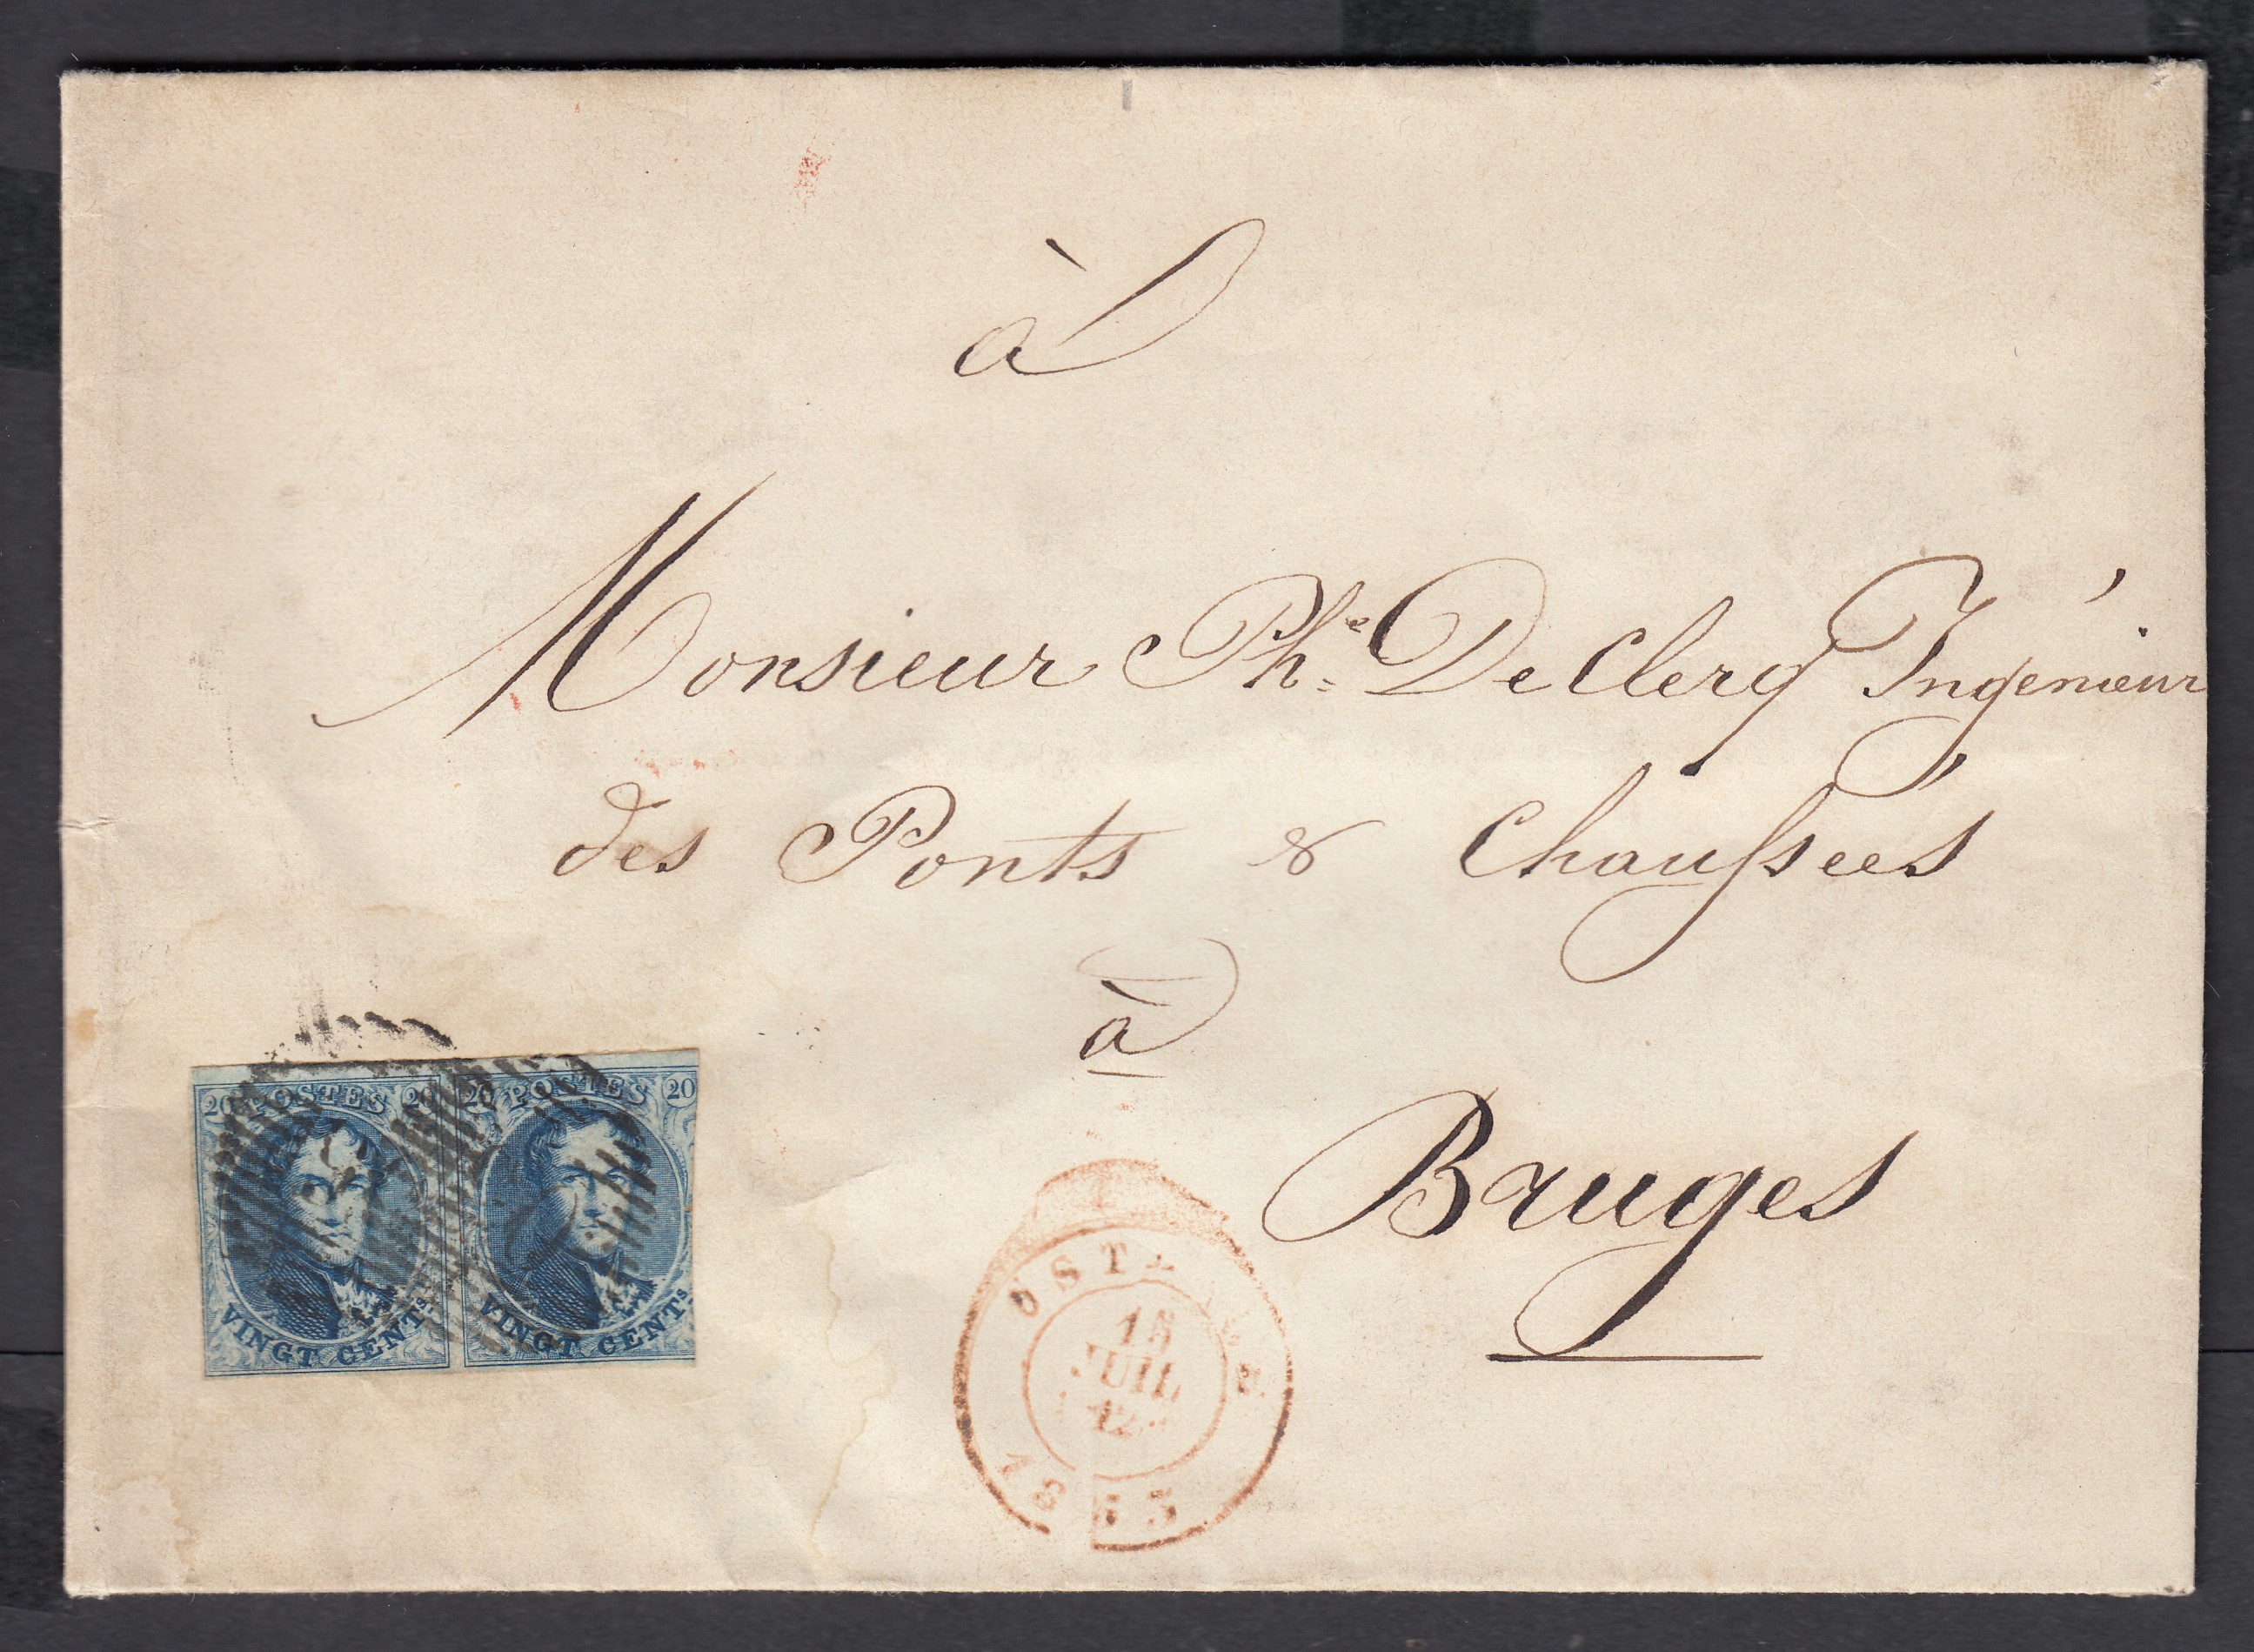 à
Monsieur Phe. De Clerq Ingénieur
des Ponts & Chaussées
à
Bruges
20 POSTES 20
VINGT CENTS.
20 POSTES 20
VINGT CENTS
18
JUIL
1853